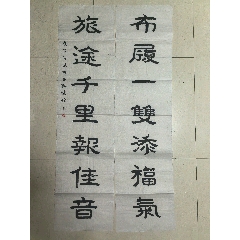 布履一雙添福氣
旅途千里報佳音